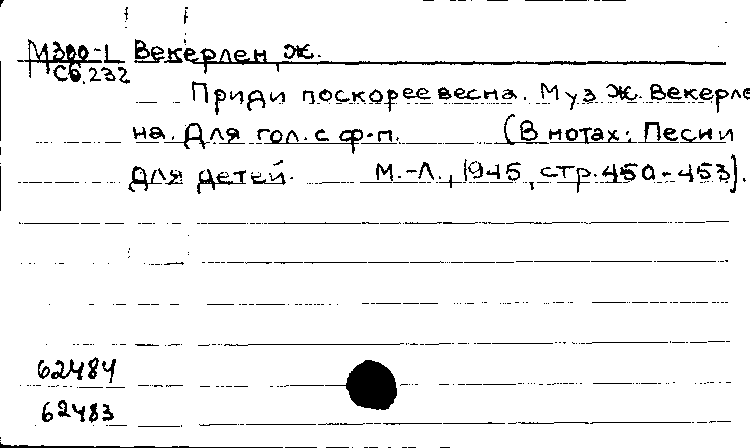 М300-1 Векерлен, Ж.
Сб.232
Приди поскорее весна. Муз Ж. Векерле
на. Для гол. с ф-п. (В нотах: Песни
для детей. М.-Л., 1945, стр. 450-453).
62484
62483